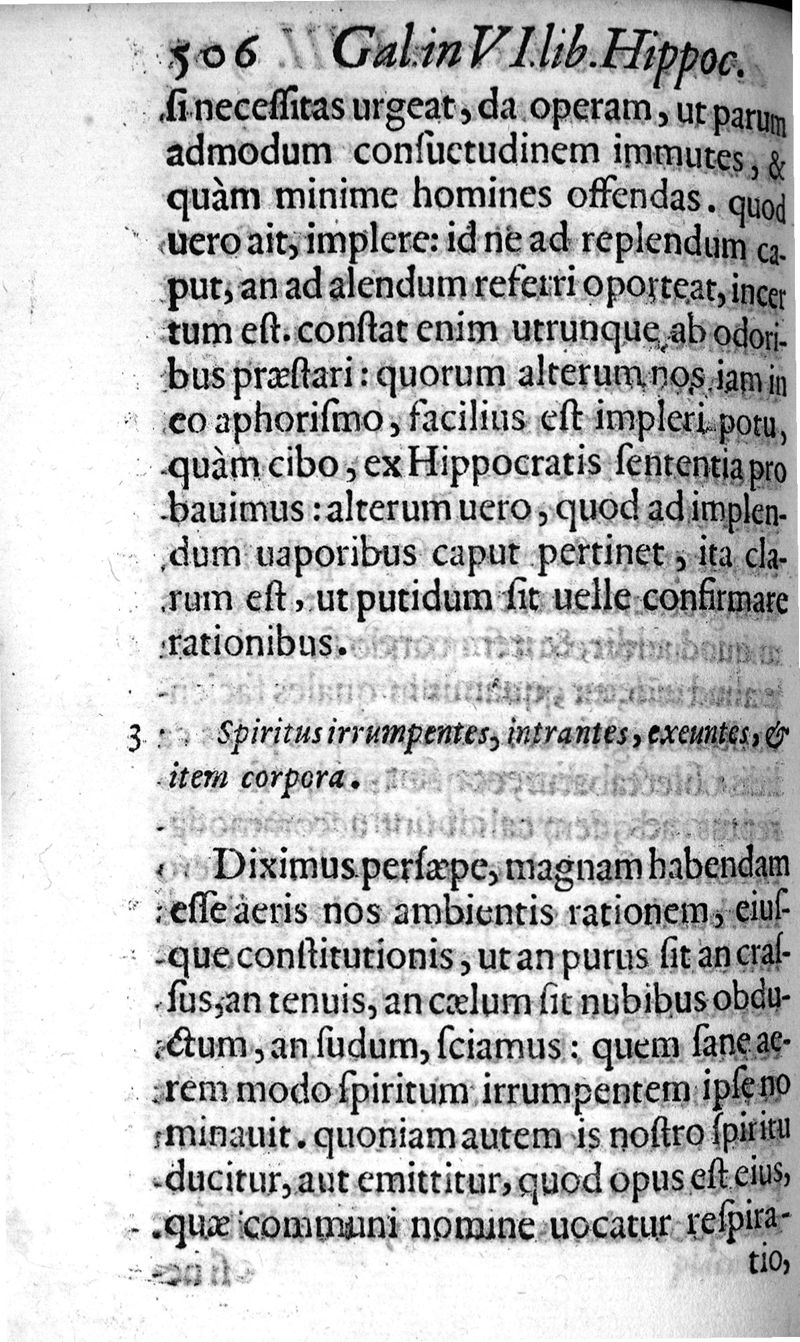 506 Gal. in VI. lib. Hippoc.
ſi neceſſitas urgeat, da operam, ut parum
admodum conſuetudinem immutes, &
quàm minime homines offendas. quod
uero ait, implere: id ne ad replendum ca-
put, an ad alendum referri oporteat, incer
tum eſt. conſtat enim utrunque ab odori-
bus præſtari: quorum alterum nos iam in
eo aphoriſmo, facilius eſt impleri potu,
quàm cibo, ex Hippocratis ſententia pro
bauimus: alterum uero, quod ad implen-
dum uaporibus caput pertinet, ita cla-
rum eſt, ut putidum ſit uelle confirmare
rationibus.
3 Spiritus irrumpentes, intrantes, exeuntes, &
item corpora.
Diximus perſæpe, magnam habendam
eſſe aeris nos ambientis rationem, eiuſ-
que conſtitutionis, ut an purus ſit an craſ-
ſus, an tenuis, an cælum ſit nubibus obdu-
ctum, an ſudum, ſciamus: quem ſane ae-
rem modo ſpiritum irrumpentem ipſe no
minauit. quoniam autem is noſtro ſpiritu
ducitur, aut emittitur, quod opus eſt eius,
quæ communi nomine uocatur reſpira-
tio,